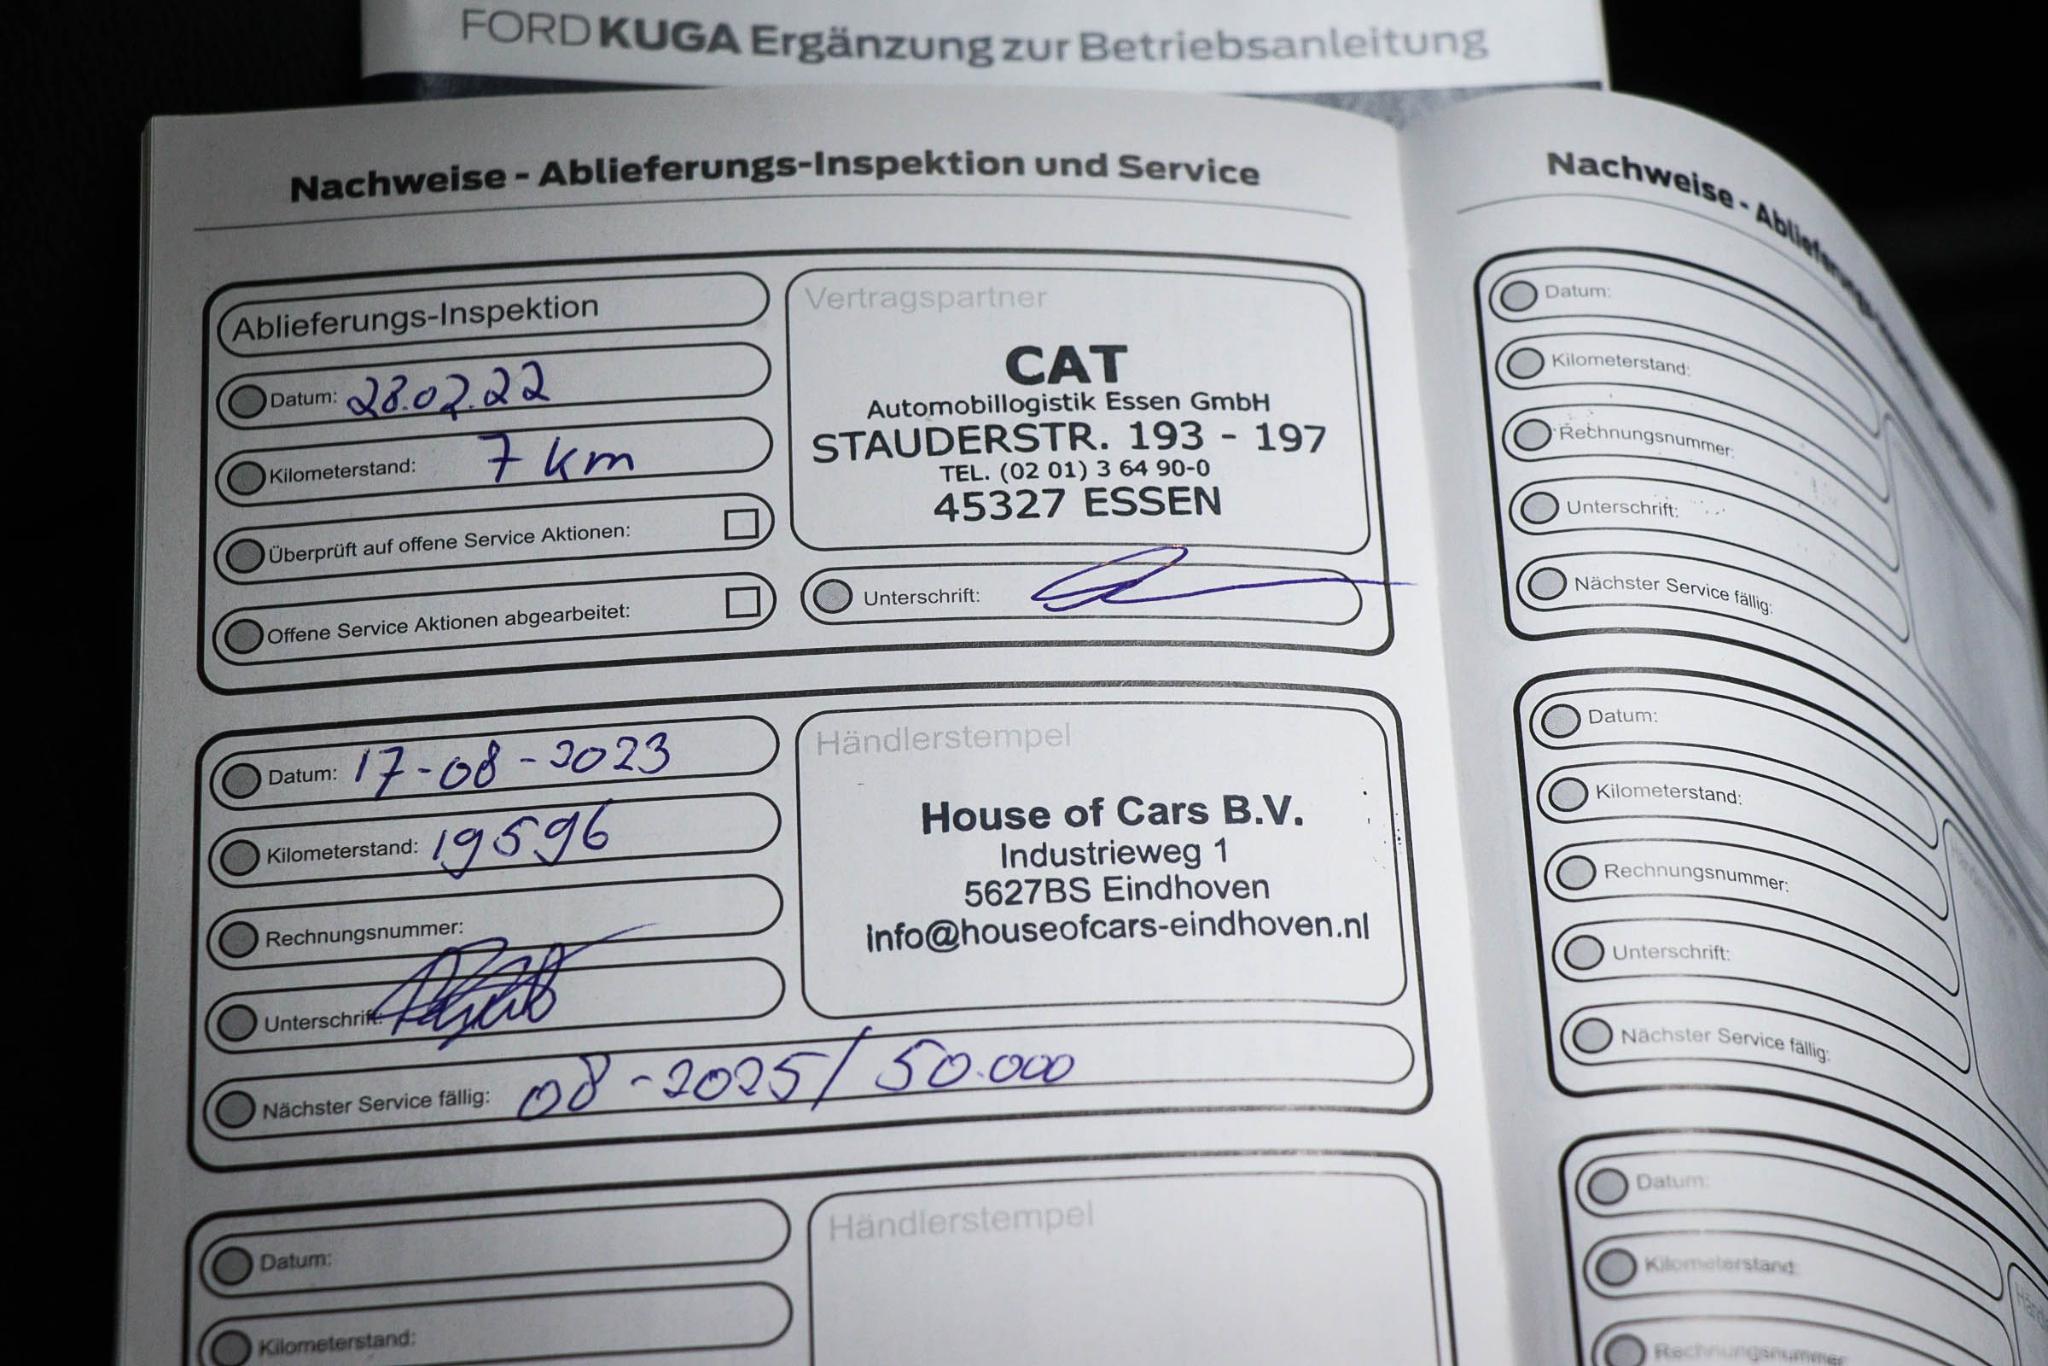 FORD KUGA Ergänzung zur Betriebsanleitung
Nachweise - Ablieferungs-Inspektion und Service
Ablieferungs-Inspektion
Datum: 28.02.22
Kilometerstand: 7 km
Überprüft auf offene Service Aktionen:
Offene Service Aktionen abgearbeitet:
Vertragspartner
CAT
Automobillogistik Essen GmbH
STAUDERSTR. 193 - 197
TEL. (02 01) 3 64 90-0
45327 ESSEN
Unterschrift:
Datum: 17-08-2023
Kilometerstand: 19596
Rechnungsnummer:
Unterschrift:
Nächster Service fällig: 08-2025/50.000
Händlerstempel
House of Cars B.V.
Industrieweg 1
5627BS Eindhoven
info@houseofcars-eindhoven.nl
Datum:
Kilometerstand:
Händlerstempel
Nachweise - Ablieferungs
Datum:
Kilometerstand:
Rechnungsnummer:
Unterschrift:
Nächster Service fällig:
Datum:
Kilometerstand:
Rechnungsnummer:
Unterschrift:
Nächster Service fällig:
Datum:
Kilometerstand:
Rechnungsnummer